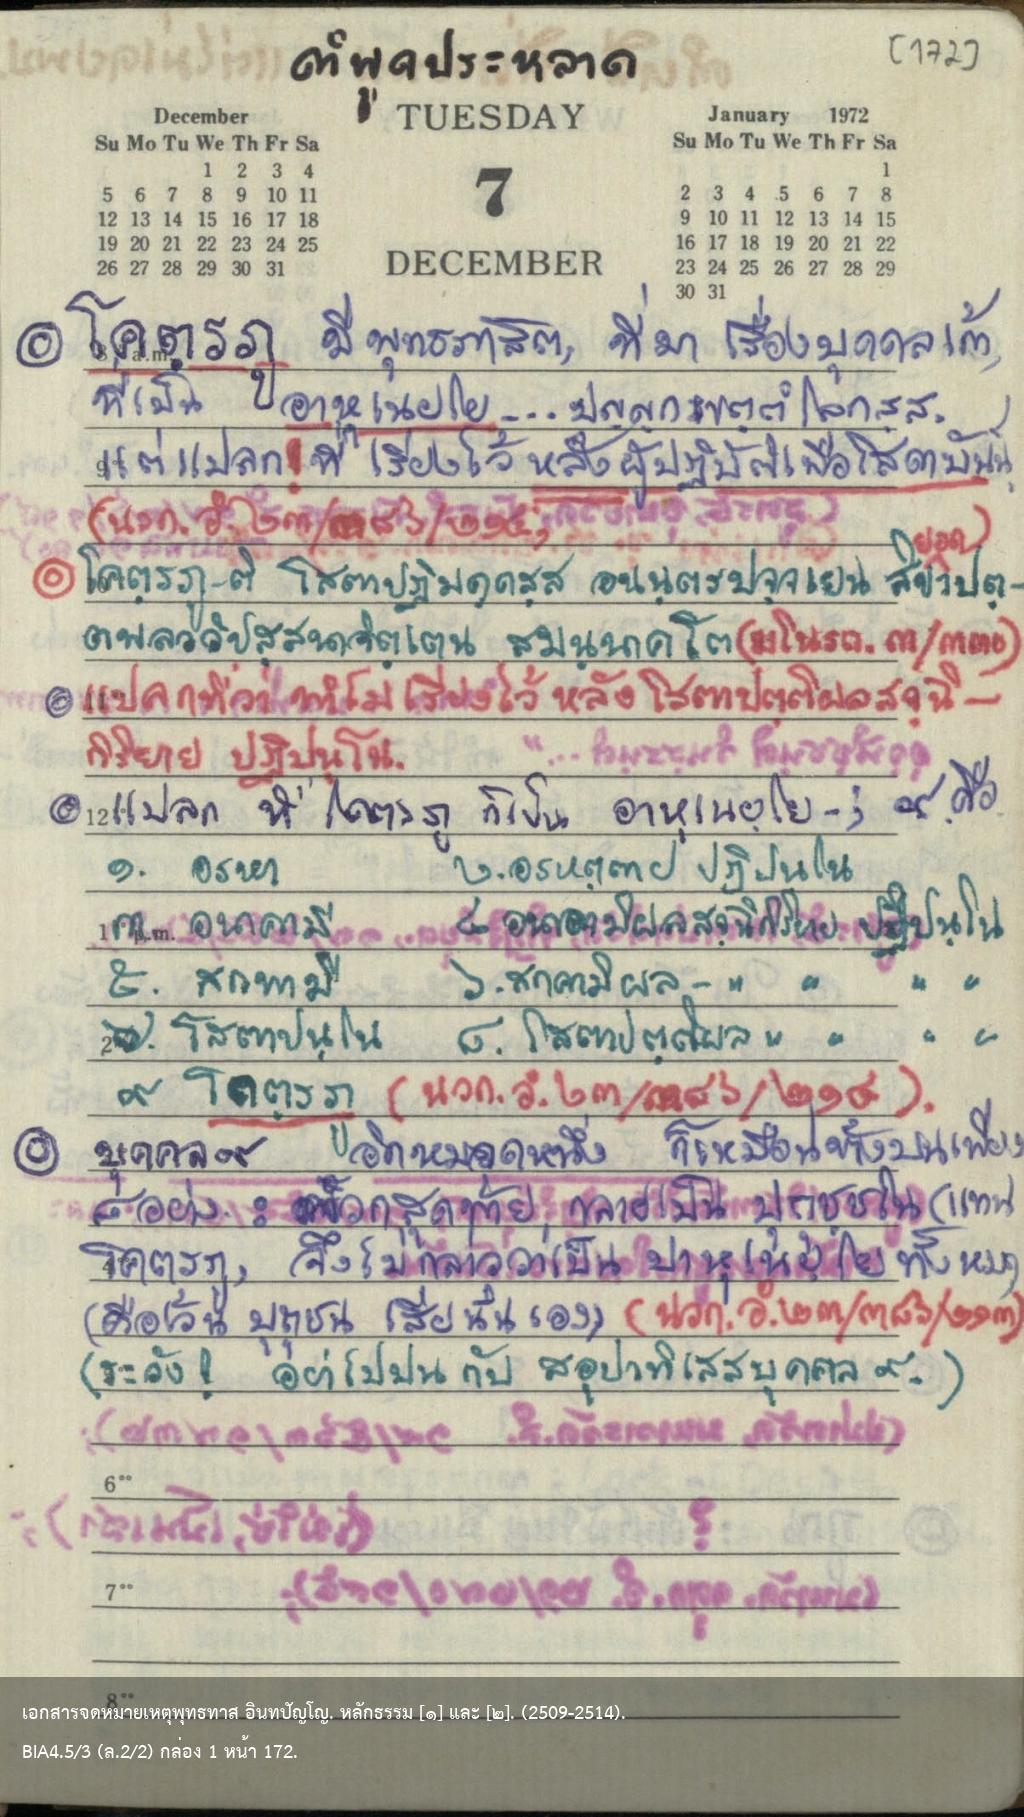 คำพูดประหลาด
[172]
December
Su Mo Tu We Th Fr Sa
1 2 3 4
5 6 7 8 9 10 11
12 13 14 15 16 17 18
19 20 21 22 23 24 25
26 27 28 29 30 31
TUESDAY
7
DECEMBER
January 1972
Su Mo Tu We Th Fr Sa
1
2 3 4 5 6 7 8
9 10 11 12 13 14 15
16 17 18 19 20 21 22
23 24 25 26 27 28 29
30 31
โคตฺรภู มีพุทธภาษิต, ที่มา เรื่องบุคคลเก้า,
ที่เป็น อาหุเนยฺโย --- ปุญฺญกฺเขตฺตํ โลกสฺส.
แต่แปลก! ที่ เรียงไว้ หลังผู้ปฏิบัติเพื่อโสดาบัน
(นวก. อํ. ๒๓/๓๘๖/๒๑๔,
โคตฺรภู-ติ โสตาปฏิมคฺคสฺส อนนฺตรปจฺจเยน
สมนฺนาคโต (มโนรถ. ๓/
แปลกที่ว่า ทำไม เรียงไว้ หลัง โสตาปตฺติผลสจฺฉิ-
กิริยาย ปฏิปนฺโน.
แปลก ที่ โคตรภู ก็เป็น อาหุเนยฺโย-; ๙ คือ
๑. อรหา ๒. อรหตฺตาย ปฏิปนฺโน
๓. อนาคามี ๔ อนาคามิผลสจฺฉิกิริยาย ปฏิปนฺโน
๕. สกทามี ๖. สกทามิผล- " " " "
๗. โสตาปนฺโน ๘. โสตาปตฺติผล " " " "
๙ โคตฺรภู (นวก. อํ. ๒๓/๓๘๖/๒๑๔).
บุคคล ๙ อีกหมวดหนึ่ง ก็เหมือนข้างบนเพียง
๘ อย่าง : พวกสุดท้าย, กลายเป็น ปุถุชฺชโน (แทน
โคตรภู, จึงไม่กล่าวว่าเป็น ปาหุเนยฺโย ทั้งหมด
(คือเว้น ปุถุชน เสียนั่นเอง) (นวก. อํ. ๒๓/๓๘๖/๒๑๓)
(ระวัง! อย่าไปปนกับ สอุปาทิเสสบุคคล ๙.)
6
7
8
เอกสารจดหมายเหตุพุทธทาส อินทปัญโญ. หลักธรรม [๑] และ [๒]. (2509-2514).
BIA4.5/3 (ล.2/2) กล่อง 1 หน้า 172.